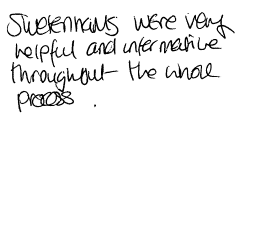 Swetenhams were very
helpful and informative
throughout the whole
process .